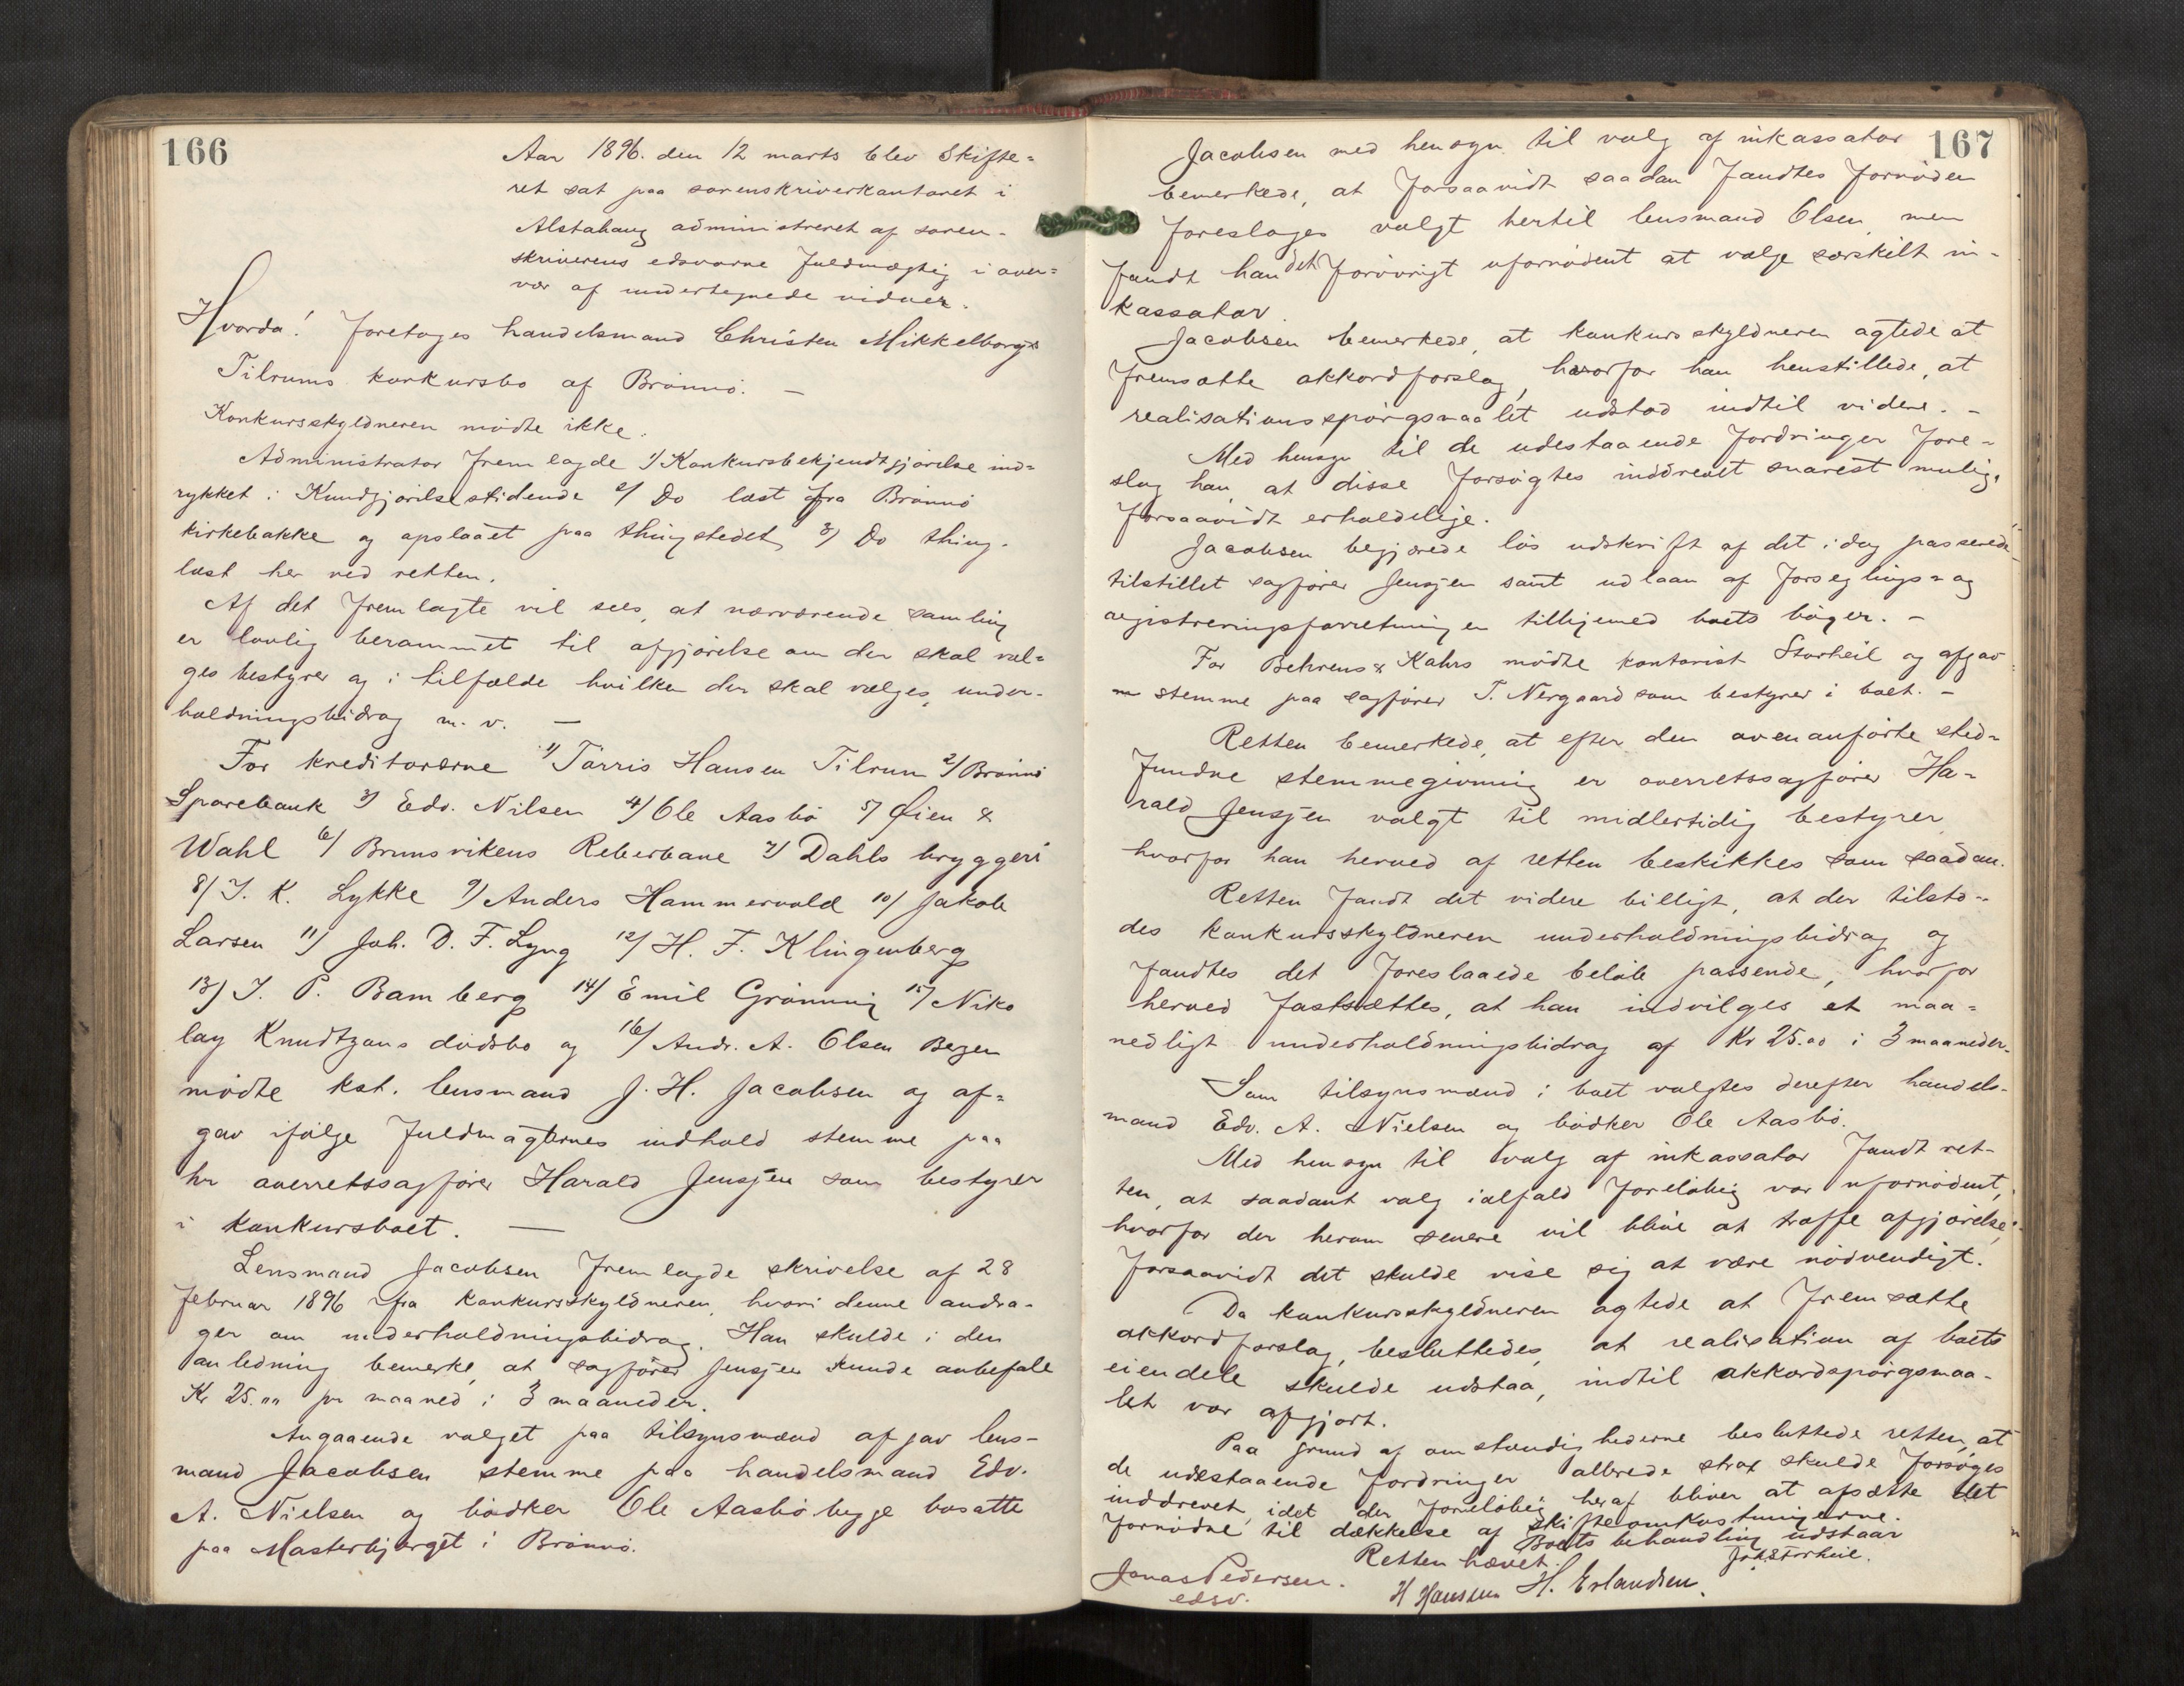 166
Aar 1896. den 12 marts blev Skifte=
ret sat paa sorenskriverkontoret i
Alstahaug administreret af soren-
skriverens edsvorne fuldmægtig i over=
vær af undertegnede vidner.
Hvorda! foretoges handelsmand Christen Mikkelborgs
Tilrums konkursbo af Brønnø. —
Konkursskyldneren mødte ikke.
Administrator fremlagde 1/ Konkursbekjendtgjørelse ind=
rykket i Kundgjørelsestidende 2/ Do læst fra Brønnø
kirkebakke og opslaaet paa thingstedet, 3/ Do thing-
læst her ved retten.
Af det fremlagte vil sees, at nærværende samling
er lovlig berammet til afgjørelse om der skal væl=
ges bestyrer og i tilfælde hvilken der skal vælges, under-
holdningsbidrag m. v. —
For kreditorerne 1/ Tørris Hansen Tilrum 2/ Brønnø
Sparebank 3/ Edv. Nilsen 4/ Ole Aasbø 5/ Øien &
Wahl 6/ Brunsvikens Reberbane 7/ Dahls bryggeri
8/ I. K. Lykke 9/ Anders Hammervold 10/ Jakob
Larsen 11/ Joh. D. F. Lyng 12/ H. F. Klingenberg
13/ I. P. Bamberg 14/ Emil Grønning 15/ Niko
lay Knudtzons dødsbo og 16/ Andr. A. Olsen Bergen
mødte kst. lensmand J. H. Jacobsen og af=
gav ifølge fuldmagternes indhold stemme paa
hr overretssagfører Harald Jensjen som bestyrer
i konkursboet. —
Lensmand Jacobsen fremlagde skrivelse af 28
februar 1896 fra konkursskyldneren, hvori denne andra-
ger om underholdningsbidrag. Han skulde i den
anledning bemerke, at sagfører Jensjen kunde anbefale
Kr 25.00 pr maaned i 3 maaneder.
Angaaende valget paa tilsynsmænd afgav lens-
mand Jacobsen stemme paa handelsmand Edv.
A. Nielsen og bødker Ole Aasbø begge bosatte
paa Masterbjerget i Brønnø.
167
Jacobsen med hensyn til valg af inkassator
bemerkede, at forsaavidt saadan fandtes fornøden
foresloges valgt hertil lensmand Olsen, men
fandt han det forøvrigt ufornødent at vælge særskilt in-
kassator.
Jacobsen bemerkede, at konkursskyldneren agtede at
fremsætte akkordforslag, hvorfor han henstillede, at
realisationsspørgsmaalet udstod indtil videre. -
Med hensyn til de udestaaende fordringer fore-
slog han, at disse forsøgtes inddrevet snarest mulig,
forsaavidt erholdelige.
Jacobsen begjærede løs udskrift af det idag passerede
tilstillet sagfører Jensjen samt udlaan af forseglings= og
registreringsforretningen tilligemed boets bøger. -
For Behrens & Kahrs mødte kontorist Storheil og afgav
stemme paa sagfører T. Nergaard som bestyrer i boet. -
Retten bemerkede, at efter den ovenanførte sted=
fundne stemmegivning er overretssagfører Ha-
rald Jensjen valgt til midlertidig bestyrer
hvorfor han herved af retten beskikkes som saadan.
Retten fandt det videre billigt, at der tilsto-
des konkursskyldneren underholdningsbidrag og
fandtes det foreslaaede beløb passende, hvorfor
herved fastsættes, at han indvilges et maa=
nedligt underholdningsbidrag af Kr 25.00 i 3 maaneder.
Som tilsynsmænd i boet valgtes derefter handels-
mand Edv. A. Nielsen og bødker Ole Aasbø.
Med hensyn til valg af inkassator fandt ret-
ten, at saadant valg ialfald foreløbig var ufornødent,
hvorfor der herom senere vil blive at træffe afgjørelse,
forsaavidt det skulde vise sig at være nødvendigt.
Da konkursskyldneren agtede at fremsætte
akkordforslag, besluttedes, at realisation af boets
eiendele skulde udstaa, indtil akkordspørgsmaa-
let var afgjort.
Paa grund af omstændighederne besluttede retten, at
de udestaaende fordringer allerede strax skulde forsøges
inddrevet, idet der foreløbig heraf bliver at afsætte det
fornødne til dækkelse af skifteomkostningerne.
Boets behandling udstaar
Retten hævet.
Joh. Storheil.
Jonas Pedersen.
edsv.
H Hansen H. Erlandsen.